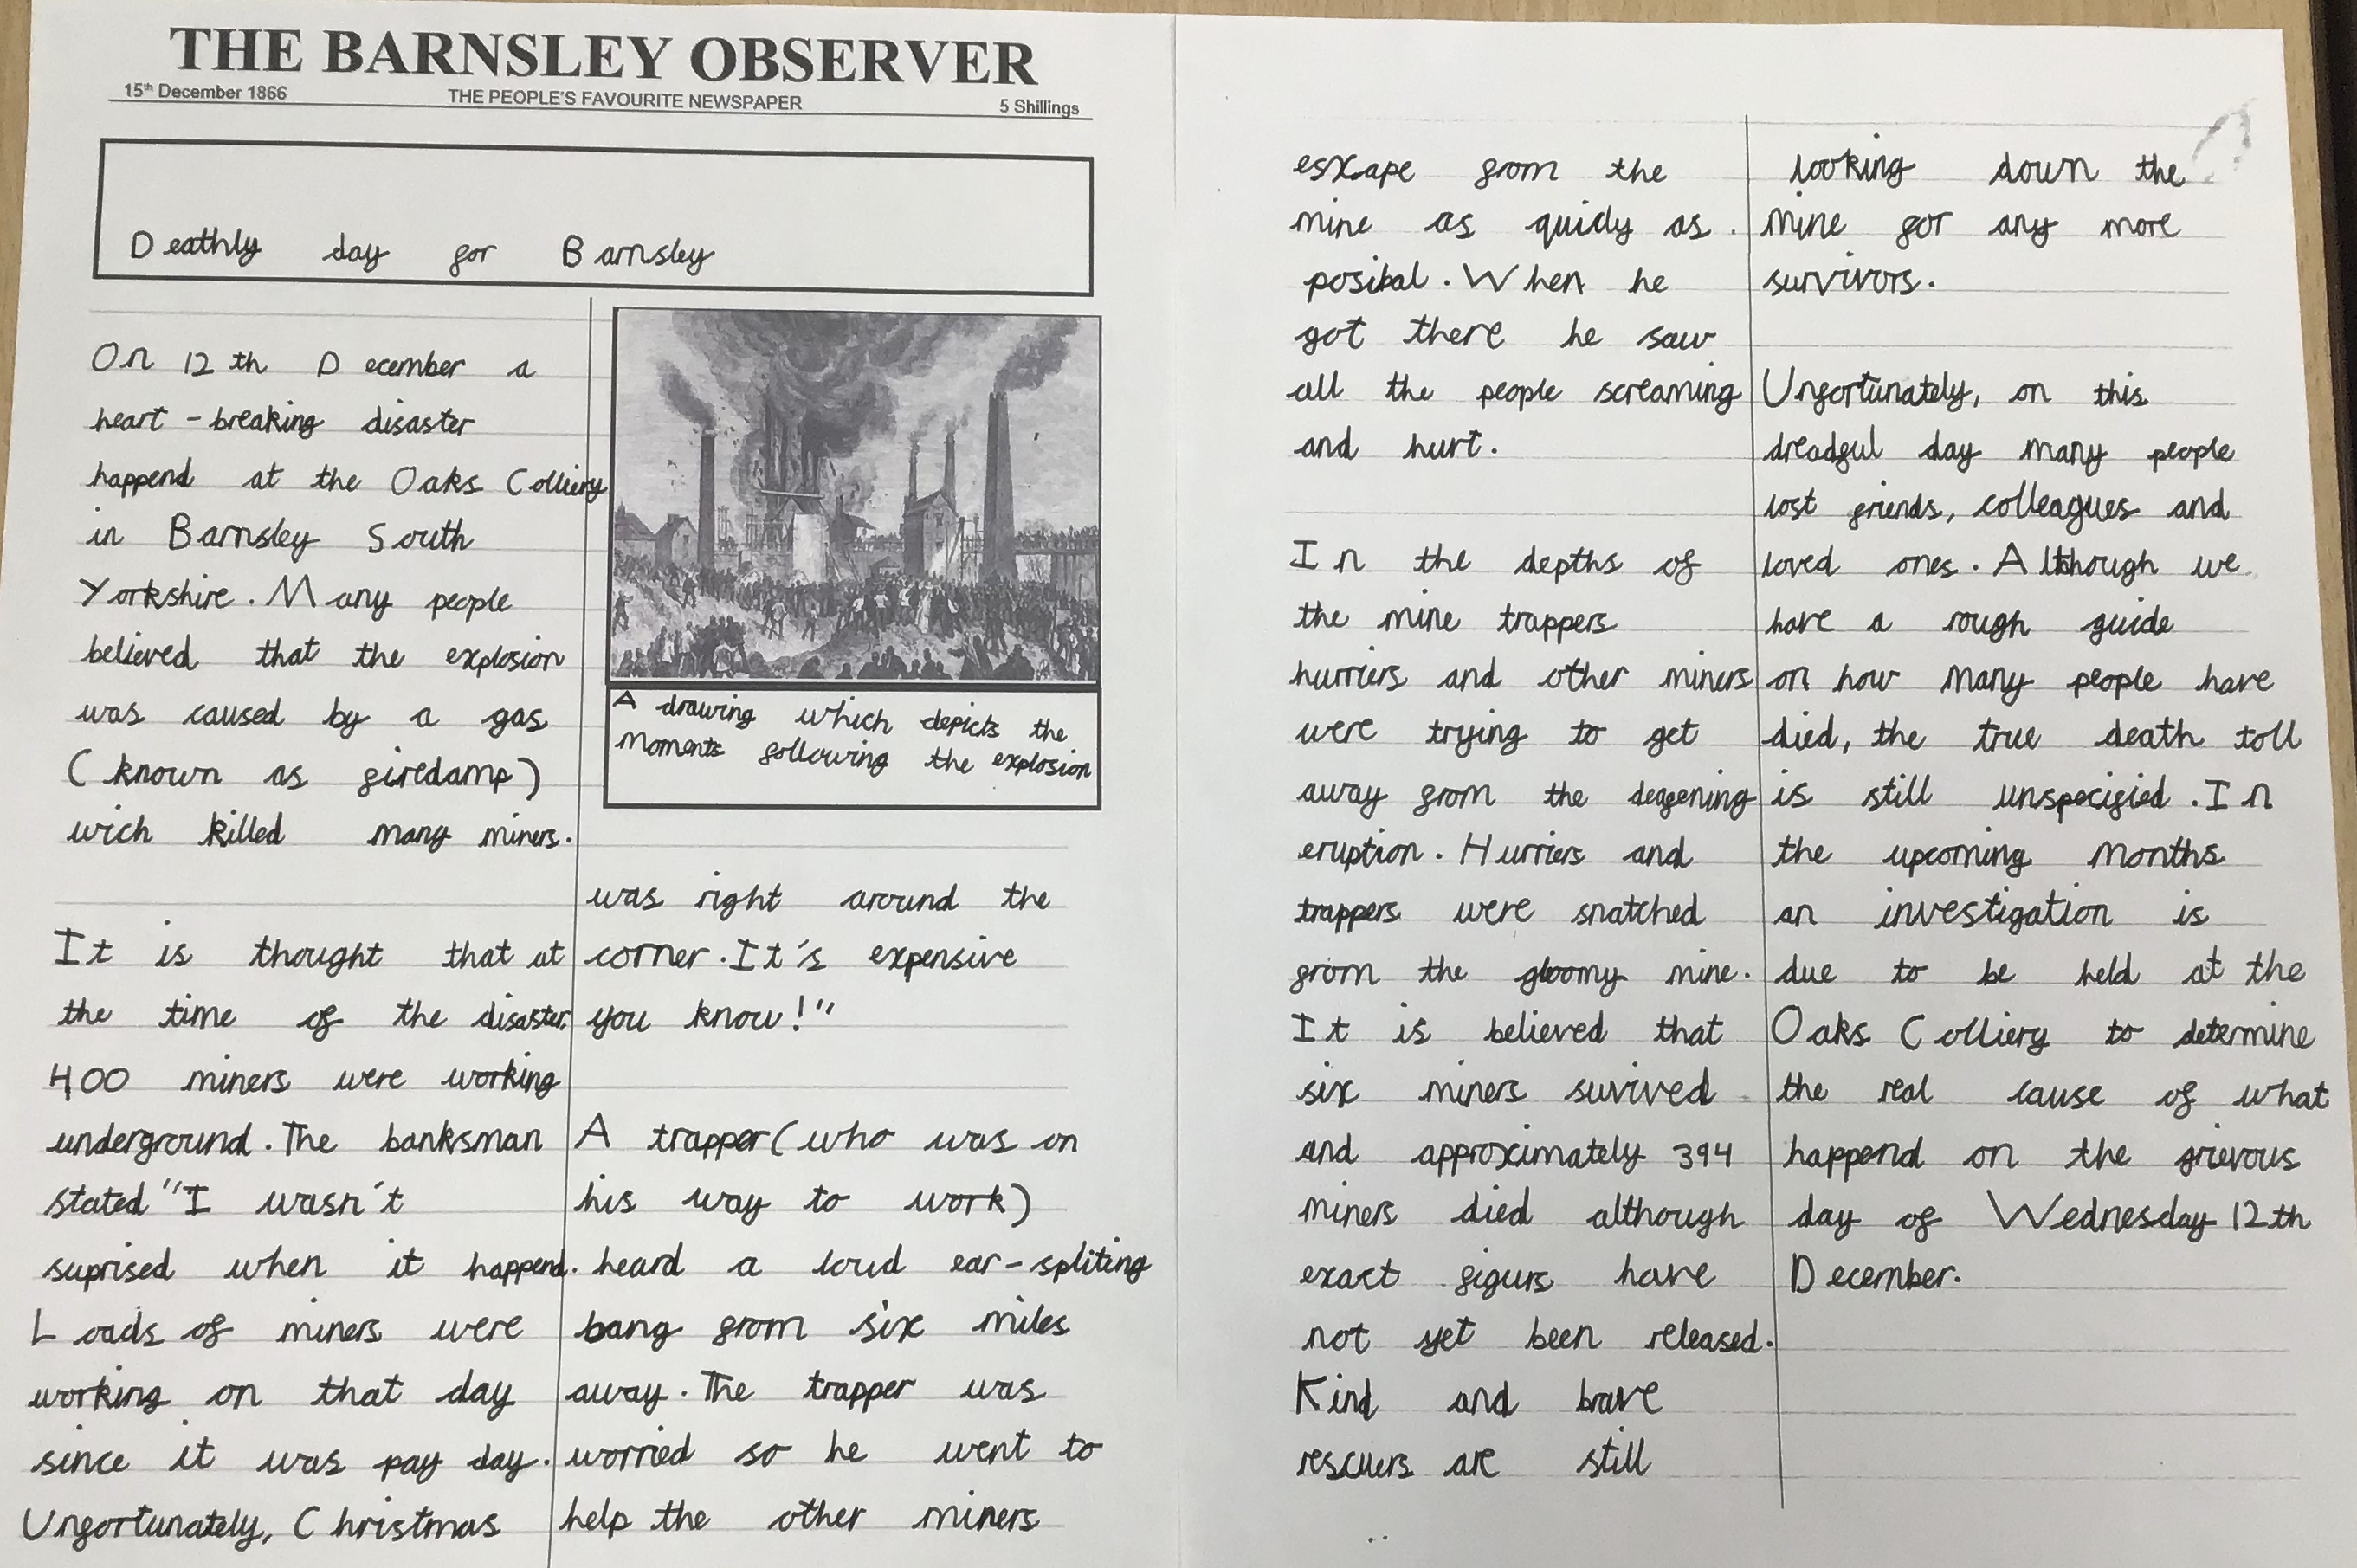 THE BARNSLEY OBSERVER
15th December 1866 THE PEOPLE'S FAVOURITE NEWSPAPER 5 Shillings
Deathly day for Barnsley
On 12th December a
heart-breaking disaster
happend at the Oaks Colliery
in Barnsley South
Yorkshire. Many people
believed that the explosion
was caused by a gas
(known as firedamp)
wich killed many miners.
It is thought that at
the time of the disaster,
400 miners were working
underground. The banksman
stated "I wasn't
suprised when it happend.
Loads of miners were
working on that day
since it was pay day.
Unfortunately, Christmas
A drawing which depicts the
moments following the explosion
was right around the
corner. It's expensive
you know!"
A trapper (who was on
his way to work)
heard a loud ear-spliting
bang from six miles
away. The trapper was
worried so he went to
help the other miners
escape from the
mine as quicly as
posibal. When he
got there he saw
all the people screaming
and hurt.
In the depths of
the mine trappers
hurriers and other miners
were trying to get
away from the deafening
eruption. Hurriers and
trappers were snatched
from the gloomy mine.
It is believed that
six miners survived
and approximately 394
miners died although
exact figurs have
not yet been released.
Kind and brave
rescuers are still
looking down the
mine for any more
survivors.
Unfortunately, on this
dreadful day many people
lost friends, colleagues and
loved ones. Although we
have a rough guide
on how many people have
died, the true death toll
is still unspecified. In
the upcoming months
an investigation is
due to be held at the
Oaks Colliery to determine
the real cause of what
happend on the grievous
day of Wednesday 12th
December.